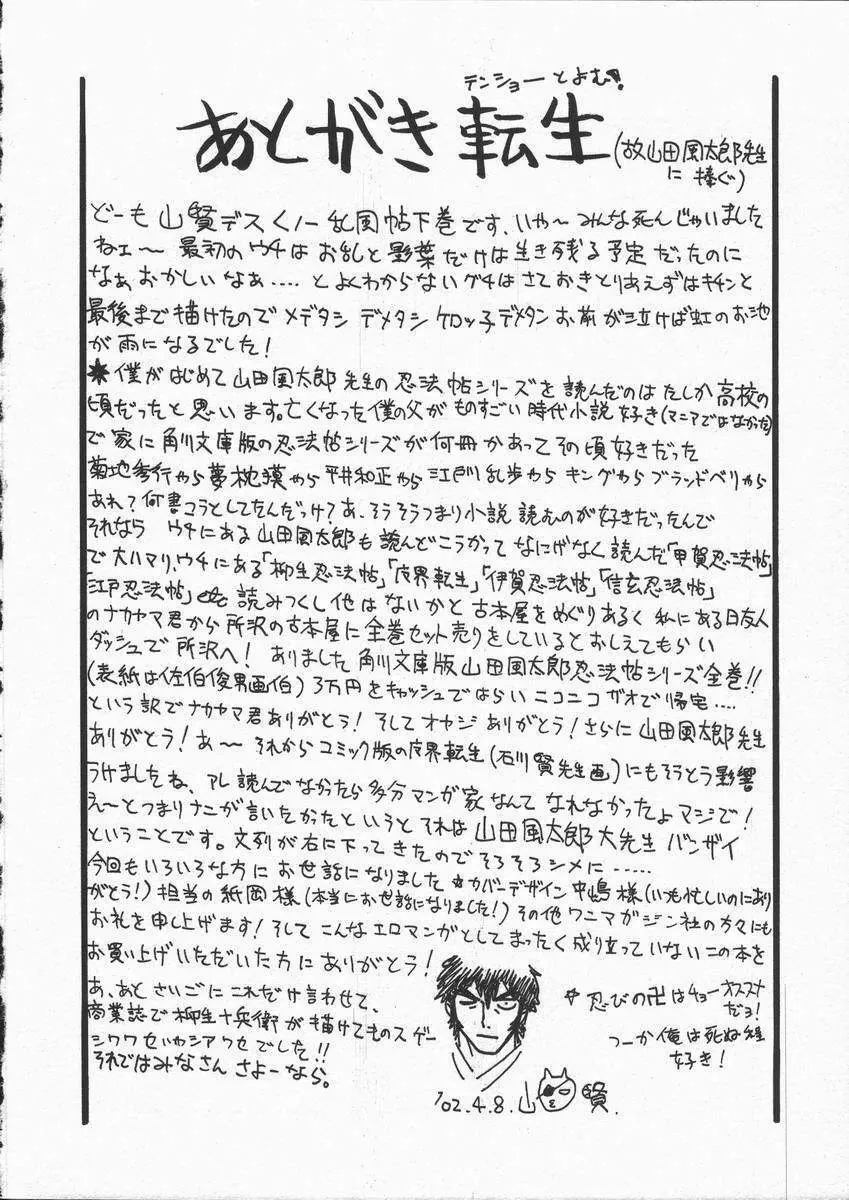 テンショーとよむ!
あとがき転生
(故山田風太郎先生
に捧ぐ)
どーも山賢デスくノ一乱風帖下巻です、いや〜みんな死んじゃいました
ねェ〜 最初のウチはお乱と影葉だけは生き残る予定だったのに
なぁおかしいなぁ....とよくわからないグチはさておきとりあえずはキチンと
最後まで描けたのでメデタシ デメタシ ケロッ子デメタン お前が泣けば虹のお池
が雨になるでした!
★僕がはじめて山田風太郎先生の忍法帖シリーズを読んだのはたしか高校の
頃だったと思います。亡くなった僕の父がものすごい時代小説好き(マニアではなかった)
で家に角川文庫版の忍法帖シリーズが何冊かあってその頃好きだった
菊地秀行やら夢枕獏やら平井和正やら江戸川乱歩やらキングやらブランドベリやら
あれ?何書コラとしてたんだっけ?あ、そうそうつまり小説読むのが好きだったんで
それなら ウチにある山田風太郎も読んどこうかってなにげなく読んだ「甲賀忍法帖」
で大ハマリ、ウチにある「柳生忍法帖」「魔界転生」「伊賀忍法帖」「信玄忍法帖」
「江戸忍法帖」etc 読みつくし他はないかと古本屋をめぐりあるく私にある日友人
のナカヤマ君から所沢の古本屋に全巻セット売りをしているとおしえてもらい
ダッシュで所沢へ!ありました角川文庫版山田風太郎忍法帖シリーズ全巻!!
(表紙は佐伯俊男画伯)3万円をキャッシュではらいニコニコガオで帰宅....
という訳でナカヤマ君ありがとう!そしてオヤジありがとう!さらに山田風太郎先生
ありがとう!あ〜 それからコミック版の魔界転生(石川賢先生画)にもそうとう影響
うけましたね、アレ読んでなかったら多分マンガ家なんてなれなかったよマジで!
え〜とつまりナニが言いたかったというとそれは山田風太郎大先生バンザイ
ということです。文列が右に下ってきたのでそろそろシメに......
今回もいろいろな方にお世話になりました☆カバーデザイン中嶋様(いつも忙しいのにあり
がとう!)担当の紙岡様(本当にお世話になりました!)その他ワニマガジン社の方々にも
お礼を申し上げます!そしてこんなエロマンガとしてまったく成り立っていないこの本を
お買い上げいただいた方にありがとう!
あ、あとさいごにこれだけ言わせて、
商業誌で柳生十兵衛が描けてものスゲー
シワワセいやシアワセでした!!
それではみなさん さよーなら。
☆忍びの卍はチョーオススメ
だョ!
つーか俺は死ぬ程
好き!
'02.4.8.山賢.